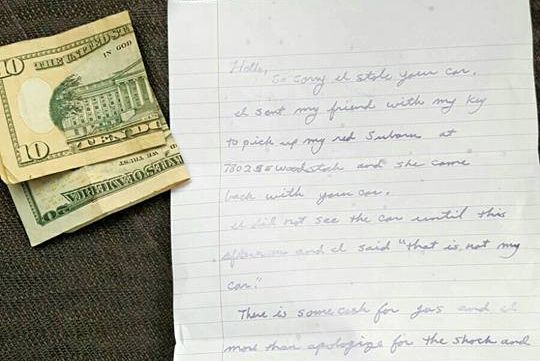 10
THE UNITED STA
IN GOD
10
WE TRUST
OF AMERICA
Hello,
So sorry I stole your car.
I sent my friend with my key
to pick up my red Subaru at
7802 SE Woodstock and she came
back with your car.
I did not see the car until this
afternoon and I said "that is not my
car."
There is some cash for gas and I
more than apologize for the shock and